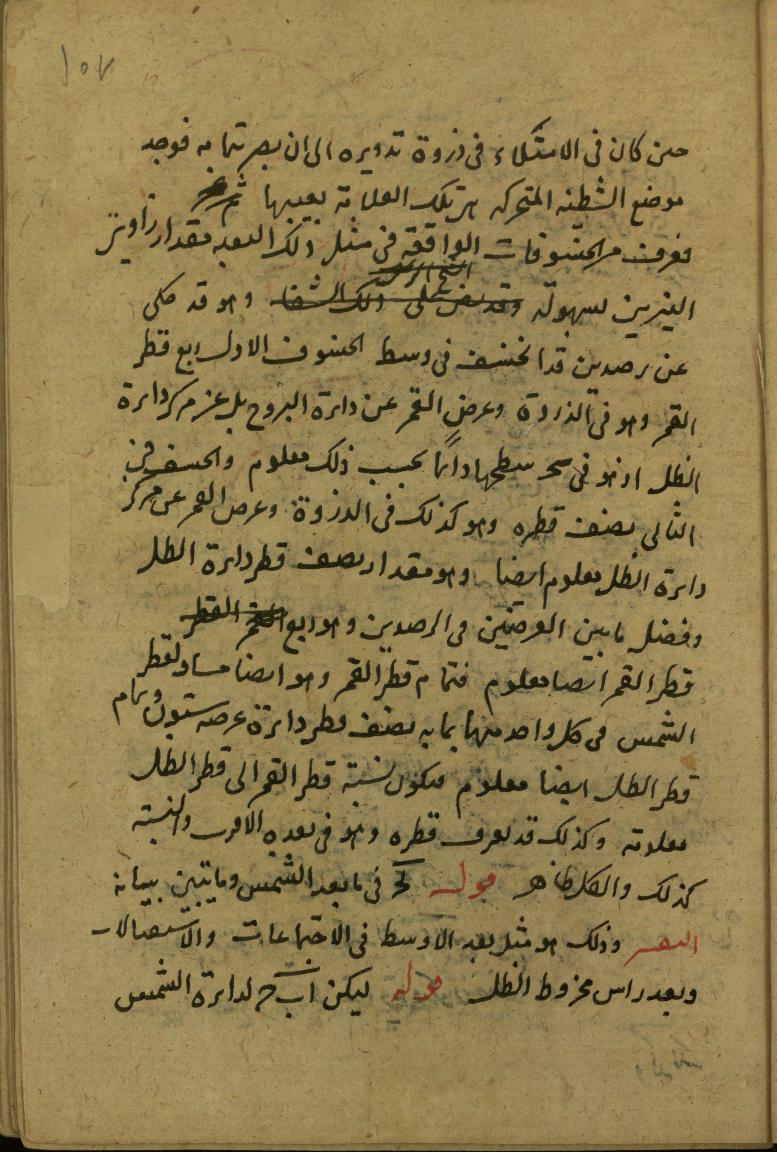 ١٠٧
حين كان في الامتلاء في ذروة تدويره الى ان يصير تمامه فوجد
موضع الشظية المتحركه من تلك العلامة بعينها ثم
فعرف من الخسوفات الواقعة في مثل ذلك البعد مقدار زاويتي
النيرين بسهولة وقد على ذلك الشفا وهو قد حكى
عن رصدين قد انخسف في وسط الخسوف الاول ربع قطر
القمر وهو في الذروة وعرض القمر عن دائرة البروج بل عن مركز دائرة
الظل اذ هو في سطحها دائما بحسب ذلك معلوم وانخسف في
الثاني نصف قطره وهو كذلك في الذروة وعرض القمر عن مركز
دائرة الظل معلوم ايضا وهو مقدار نصف قطر دائرة الظل
وفضل ما بين العرضين في الرصدين وهو ربع القطر
قطر القمر ايضا معلوم فتمام قطر القمر وهو ايضا مساو لقطر
الشمس في كل واحد منهما بما به نصف قطر دائرة عرضه ستون وتمام
قطر الظل ايضا معلوم فيكون نسبة قطر القمر الى قطر الظل
معلومة وكذلك قد يعرف قطره وهو في بعده الاقرب والنسبة
كذلك والكل ظاهر قوله في ما بعد الشمس وما يتبين ببيانه
وذلك هو مثل بعد الاوسط في الاجتماعات والاستقبالات
وبعد راس مخروط الظل قوله ليكن اب ج لدائرة الشمس